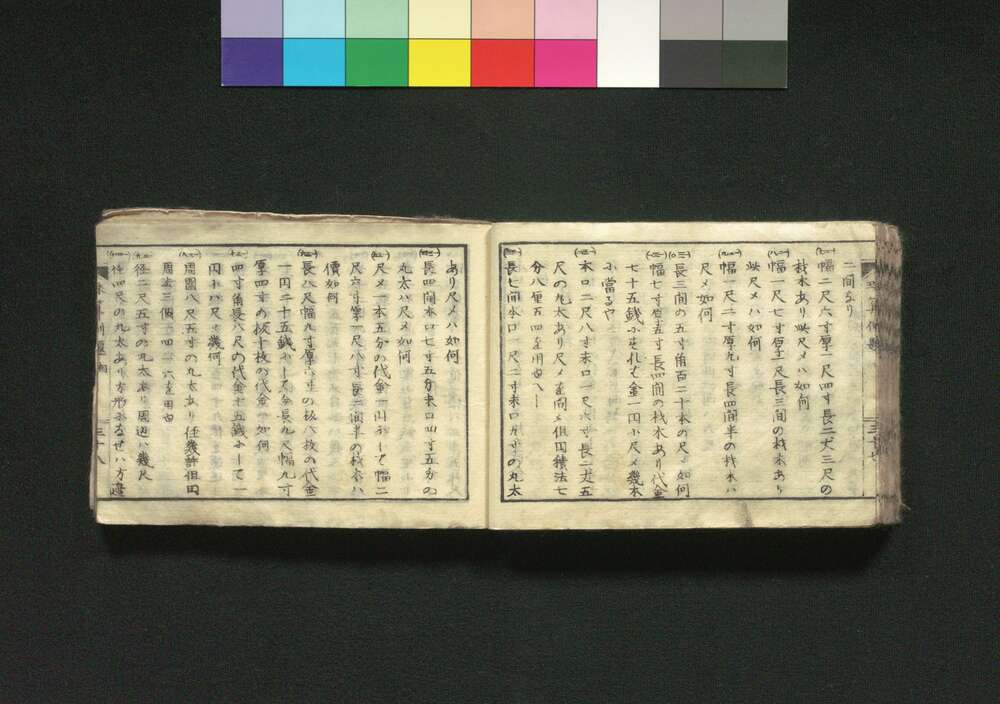 二間なり
幅二尺六寸厚一尺四寸長二丈三尺の
材木あり此尺〆ハ如何
幅一尺七寸厚一尺長三間の材木あり
此尺〆ハ如何
幅一尺二寸厚九寸長四間半の材木ハ
尺〆如何
長三間の五寸角百二十本の尺〆如何
幅七寸厚五寸長四間の材木あり代金
七十五銭ふ
金一円ふ尺〆幾本
ふ當るや
木口二尺八寸末口一尺六寸長二丈五
尺の丸太あり尺〆を問ふ但円積法七
分八厘五四を用也
長七間木口一尺二寸末口九寸の丸太
あり尺〆ハ如何
長四間木口七寸五分末口四寸五分の
丸太ハ尺〆如何
尺〆一本五分の代金一円ふして幅二
尺六寸厚一尺八寸長二間半の材木ハ
價如何
長八尺幅九寸厚六寸の板八枚の代金
一円二十五銭ふして今長九尺幅九寸
厚四寸の板十枚の代金ハ如何
四寸角長八尺の代金十五銭ふして一
円ふハ尺〆幾何
周圍八尺五寸の丸太あり径幾許但円
周法三個一四一六を用也
径二尺五寸の丸太あり周廻ハ幾尺
径四尺の丸太あり方形ふなせハ方邊
三十八